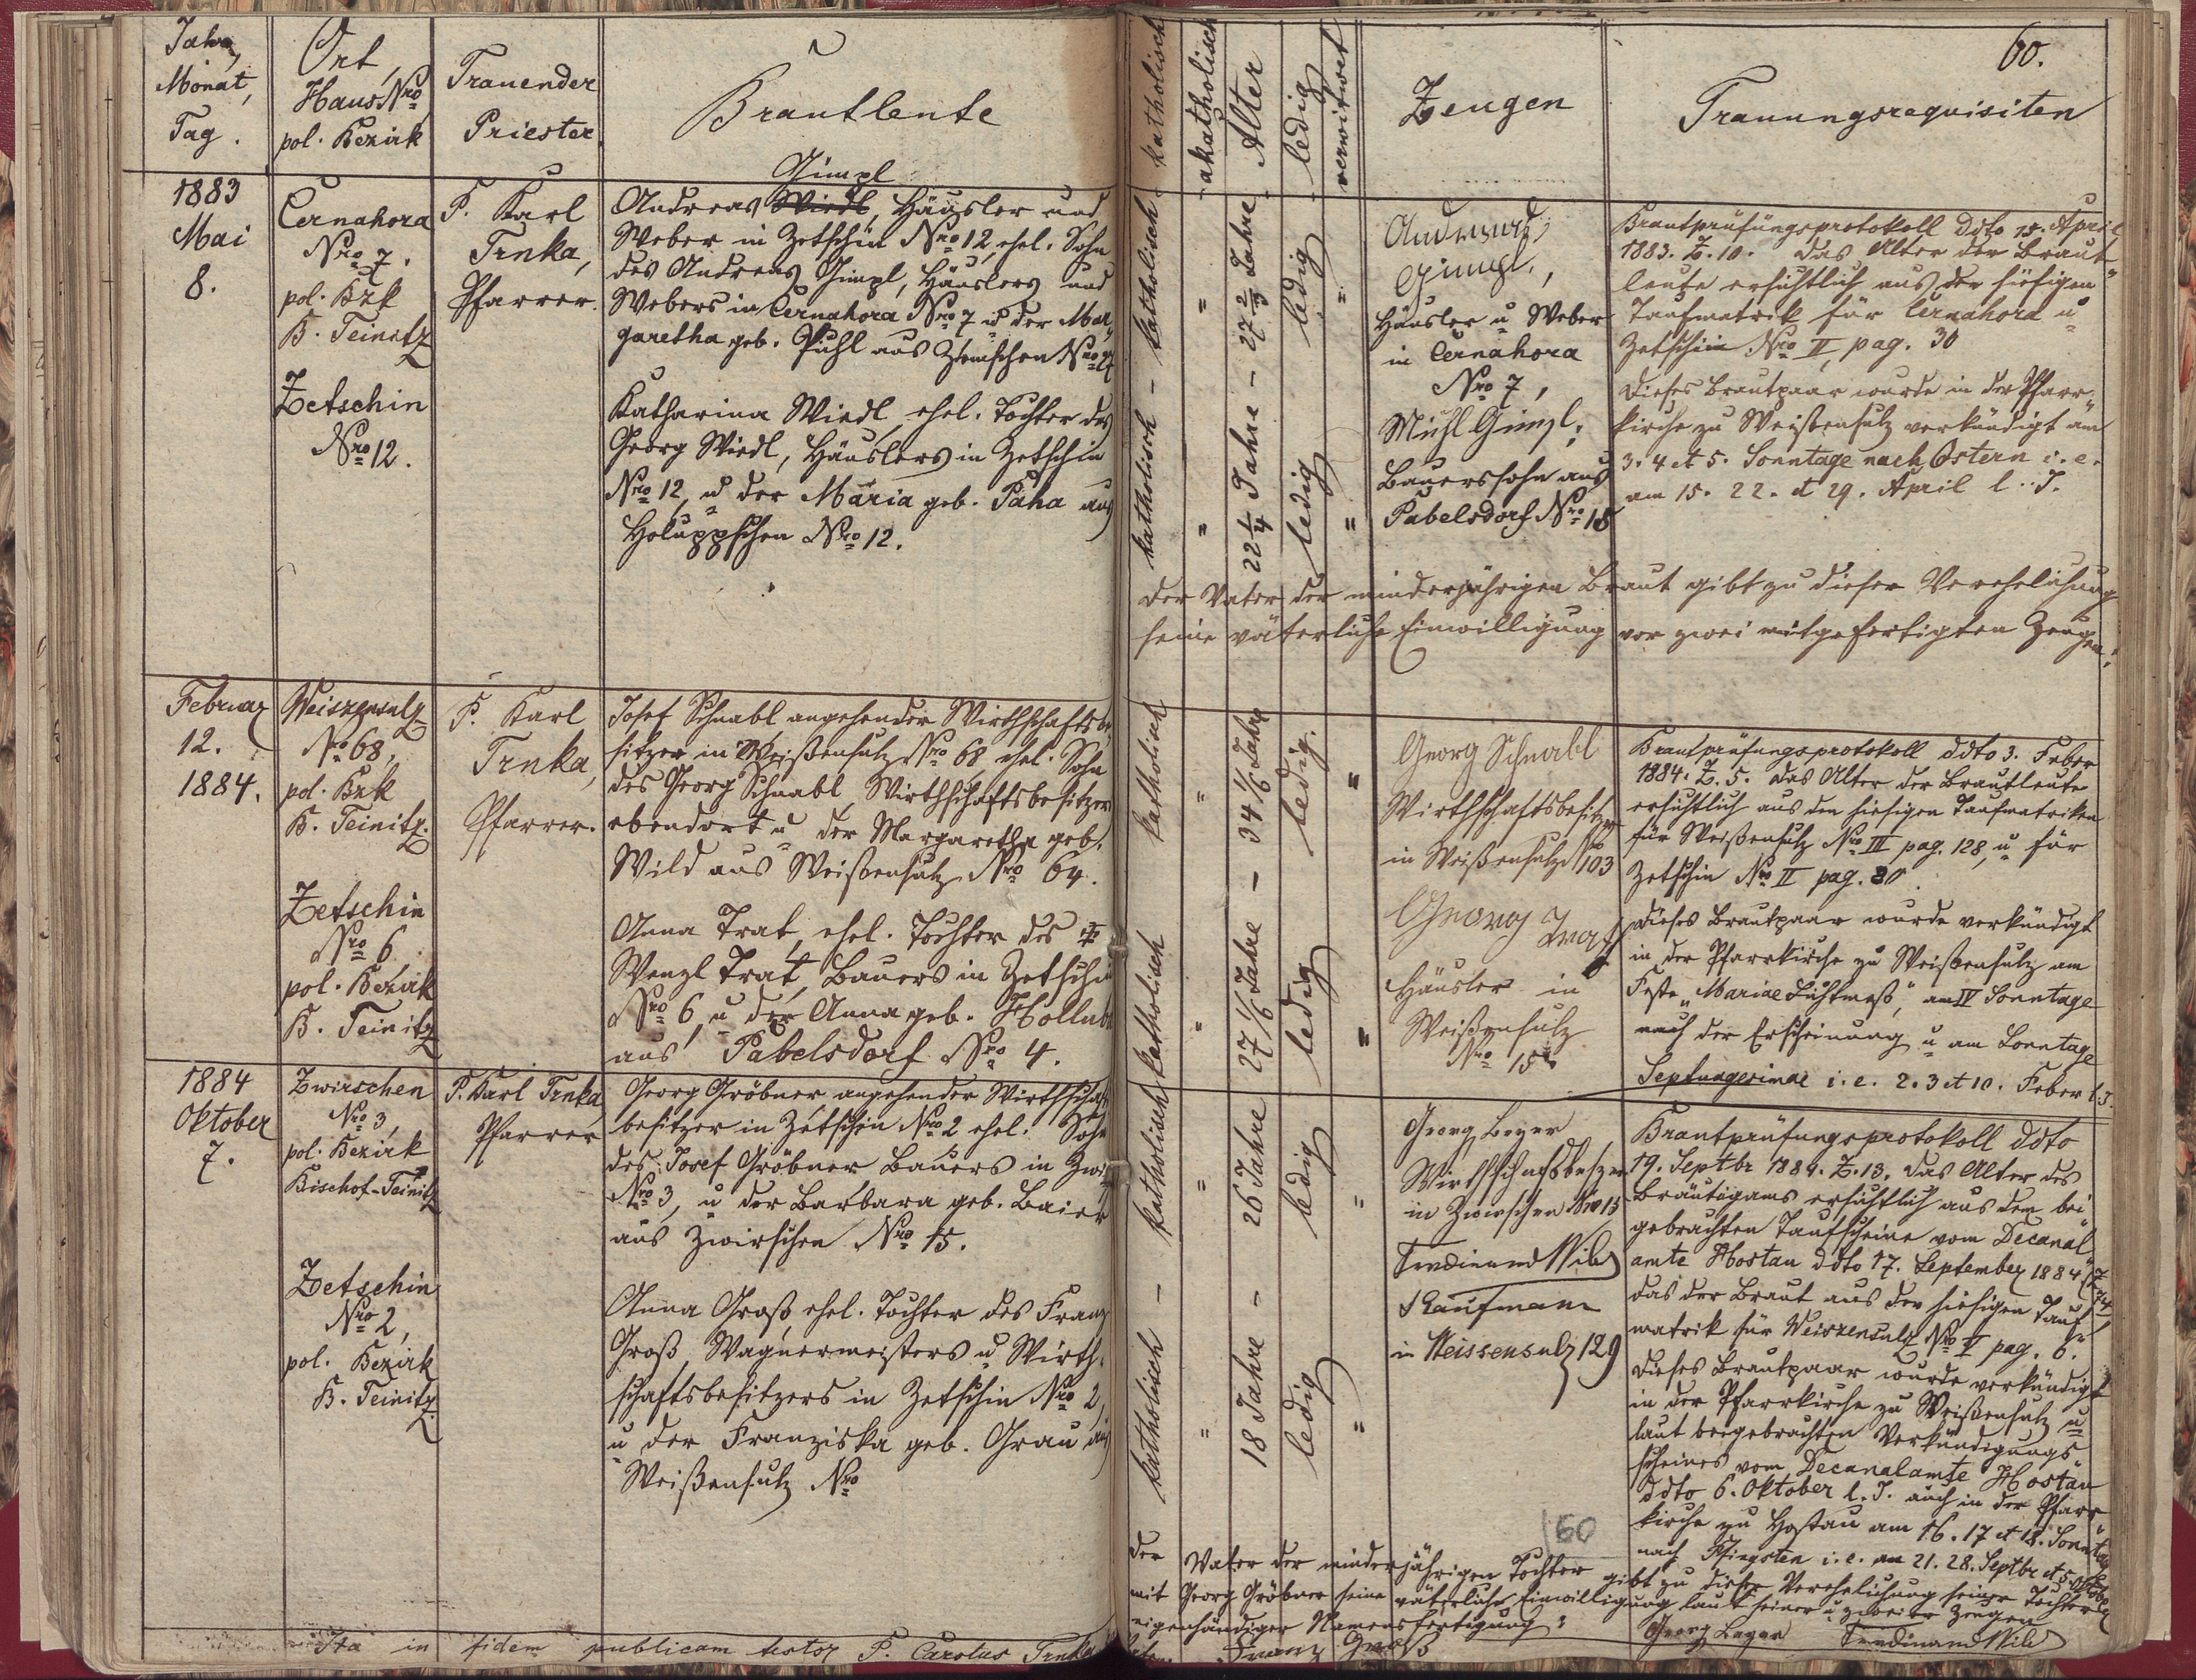 60.
Jahr,
Monat,
Tag.
Ort,
Haus Nro
pol. Bezirk
Trauender
Priester
Brautleute
katholisch
akatholisch
Alter
ledig
verwitwet
Zeugen
Trauungsrequisiten
1883
Mai
8.
Černahora
Nro 7.
pol. Bzk
B. Teinitz
Zetschin
Nro 12.
P. Karl
Trnka,
Pfarrer.
Gimpl
Andreas Wiedl, Häusler und
Weber in Zetschin Nro 12, ehel. Sohn
des Andreas Gimpl, Häuslers und
Webers in Černahora Nro 7 u der Mar-
garetha geb. Pühl aus
Katharina Wiedl, ehel. Tochter des
Georg Wiedl, Häuslers in Zetschin
Nro 12, u der Maria geb. Paha aus
Holuppschen Nro 12.
katholisch - katholisch
" "
22 1/4 Jahre - 27 2/3 Jahre
ledig ledig
" "
Andreas
Gimpl,
Häusler u Weber
in Černahora
Nro 7,
Michl Gimpl,
Bauerssohn aus
Pabelsdorf Nro 15
Brautprüfungsprotokoll ddto 15. April
1883. Z. 10. Das Alter der Braut-
leute ersichtlich aus der hiesigen
Taufmatrik für Černahora u
Zetschin Nro II, pag. 30
Dieses Brautpaar wurde in der Pfarr-
kirche zu Weißensulz verkündigt am
3. 4 et 5. Sonntage nach Ostern i. e.
am 15. 22. et 29. April l. J.
Der Vater der minderjährigen Braut gibt zu dieser Verehelichung
seine väterliche Einwilligung vor zwei mitgefertigten Zeugen.
Februar
12.
1884.
Weiszensulz
No 68,
pol. Bzk
B. Teinitz.
Zetschin
Nro 6
pol. Bezirk
B. Teinitz
P. Karl
Trnka,
Pfarrer.
Josef Schnabl angehender Wirthschaftsbe-
sitzer in Weißensulz Nro 68 ehel. Sohn
des Georg Schnabl, Wirthschaftsbesitzer
ebendort u der Margaretha geb.
Wild aus Weißensulz Nro 64.
Anna Trat, ehel. Tochter des †
Wenzl Trat, Bauers in Zetschin
Nro 6 u der Anna geb. Hollub
aus Pabelsdorf Nro 4.
katholisch katholisch
" "
27 1/6 Jahre - 34 1/6 Jahre
ledig ledig.
" "
Georg Schnabl
Wirthschaftsbesitzer
in Weißensulz No 103
Georg Trat
Häusler in
Weißensulz
No 15
Brautprüfungsprotokoll ddto 3. Feber
1884. Z. 5. Das Alter der Brautleute
ersichtlich aus den hiesigen Taufmatriken
für Weißensulz Nro III pag. 128, u für
Zetschin Nro II pag. 80.
Dieses Brautpaar wurde verkündigt
in der Pfarrkirche zu Weißensulz am
Feste „Mariae Lichtmeß", am IV Sonntage
nach der Erscheinung u am Sonntage
Septuagesimae i. e. 2. 3 et 10. Feber l. J.
1884
Oktober
7.
Zwirschen
No 3,
pol. Bezirk
Bischof-Teinitz
Zetschin
Nro 2,
pol. Bezirk
B. Teinitz.
P. Karl Trnka
Pfarrer
Georg Gröbner angehender Wirthschafts-
besitzer in Zetschin Nro 2 ehel. Sohn
des Josef Gröbner Bauers in
Nro 3, u der Barbara geb. Baier
aus Zwirschen Nro 15.
Anna Groß, ehel. Tochter des Franz
Groß, Wagnermeisters u Wirth-
schaftsbesitzers in Zetschin Nro 2,
u der Franziska geb. Grau aus
Weißensulz Nro
katholisch - katholisch
" "
18 Jahre - 26 Jahre
ledig ledig
" "
Georg Beyer
Wirthschaftsbesitzer
in Zwirschen Nro 15
Ferdinand Wild
Kaufmann
in Weissensulz 129
Brautprüfungsprotokoll ddto
19. Septbr 1884. Z. 13. Das Alter des
Bräutigams ersichtlich aus dem bei-
gebrachten Taufscheine vom Decanal-
amte Hostau ddto 17. September 1884
das der Braut aus der hiesigen Tauf-
matrik für Weiszensulz Nro V pag. 6.
Dieses Brautpaar wurde verkündigt
in der Pfarrkirche zu Weißensulz u
laut beigebrachten Verkündigungs-
scheines vom Decanalamte Hostau
ddto 6. Oktober l. J. auch in der Pfarr-
kirche zu Hostau am 16. 17 et 18. Sonntage
nach Pfingsten i. e. am 21. 28. Septbr et 5. Oktober
60
Der Vater der minderjährigen Tochter gibt zu dieser Verehelichung seiner Tochter
mit Georg Gröbner seine väterliche Einwilligung laut seiner u zweier Zeugen
eigenhändiger Namensfertigung:
Franz Groß
Georg Beyer Ferdinand Wild
Ita in fidem publicam testor P. Carolus Trnka